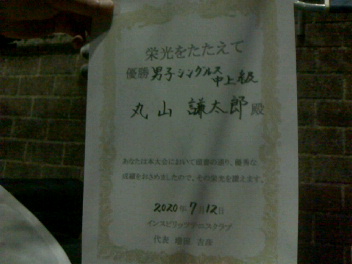 栄光をたたえて
優勝 男子シングルス
中上級
丸山 謙太郎 殿
あなたは本大会において頭書の通り、優秀な
成績をおさめましたので、その栄光を讃えます。
2020年7月12日
代表